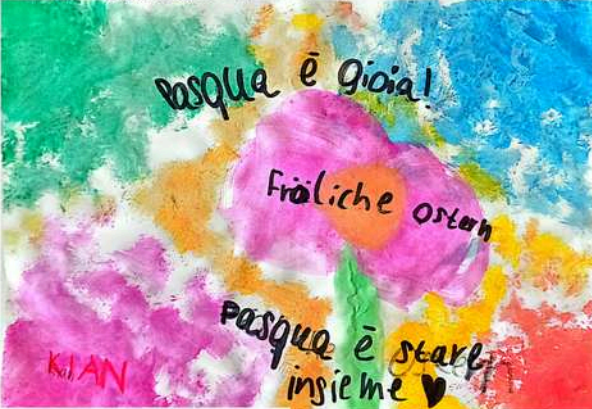 Pasqua è gioia!
Fröliche Ostern
Pasqua è stare
insieme ♥
KIAN